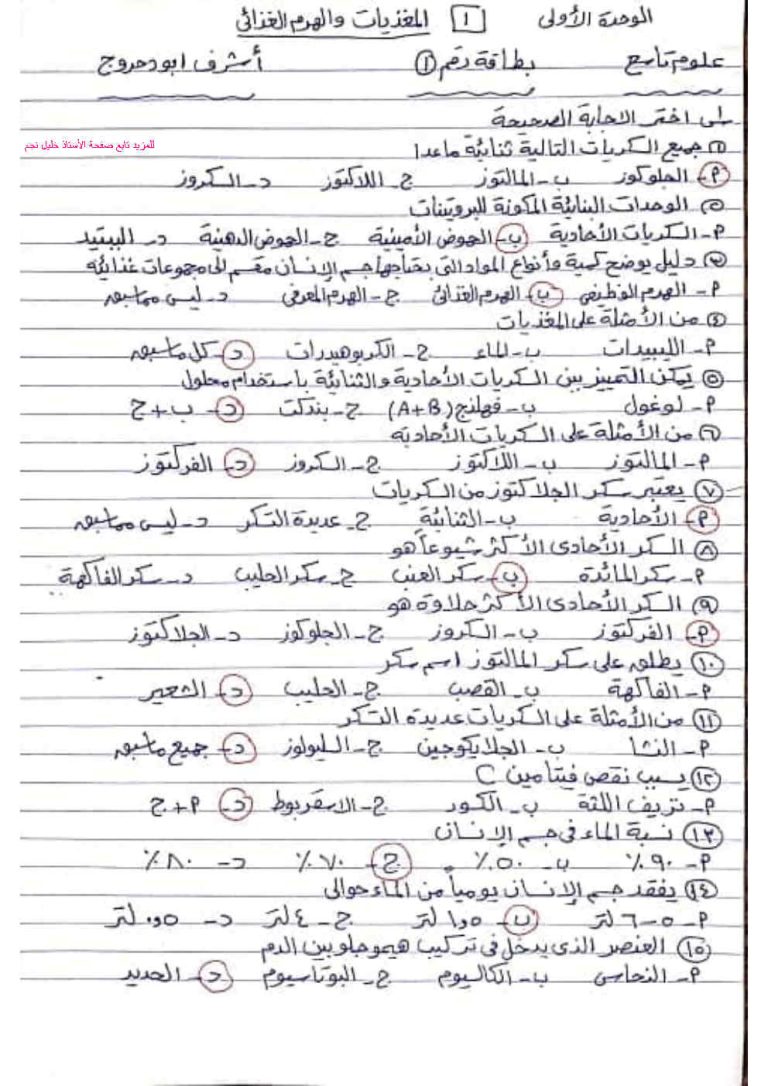 الوحدة الأولى 1 المغذيات والهرم الغذائي
علوم تاسع بطاقة رقم ١ أشرف ابودحروج
اختر الاجابة الصحيحة
للمزيد تابع صفحة الأستاذ خليل نجم
١ جميع السكريات التالية ثنائية ماعدا
أ- الجلوكوز ب- المالتوز ج- اللاكتوز د- السكروز
٢ الوحدات البنائية المكونة للبروتينات
أ- السكريات الأحادية ب- الحموض الأمينية ج- الحموض الدهنية د- الببتيد
٣ دليل يوضح كمية وأنواع المواد التي يحتاجها جسم الإنسان مقسم إلى مجموعات غذائية
أ- الهرم الوظيفي ب- الهرم الغذائي ج- الهرم المعرفي د- ليس مماسبق
٤ من الأمثلة على المغذيات
أ- الليبيدات ب- الماء ج- الكربوهيدرات د- كل ماسبق
٥ يمكن التمييز بين السكريات الأحادية والثنائية باستخدام محلول
أ- لوغول ب- فهلنج (A+B) ج- بندكت د- ب+ج
٦ من الأمثلة على السكريات الأحادية
أ- المالتوز ب- اللاكتوز ج- السكروز د- الفركتوز
٧ يعتبر سكر الجلاكتوز من السكريات
أ- الأحادية ب- الثنائية ج- عديدة التسكر د- ليس مماسبق
٨ السكر الأحادي الأكثر شيوعاً هو
أ- سكر المائدة ب- سكر العنب ج- سكر الحليب د- سكر الفاكهة
٩ السكر الأحادي الأكثر حلاوة هو
أ- الفركتوز ب- السكروز ج- الجلوكوز د- الجلاكتوز
١٠ يطلق على سكر المالتوز اسم سكر
أ- الفاكهة ب- القصب ج- الحليب د- الشعير
١١ من الأمثلة على السكريات عديدة التسكر
أ- النشا ب- الجلايكوجين ج- السليولوز د- جميع ماسبق
١٢ يسبب نقص فيتامين C
أ- نزيف اللثة ب- الكسور ج- الاسقربوط د- أ+ج
١٣ نسبة الماء في جسم الإنسان
أ- ٩٠٪ ب- ٥٠٪ ج- ٧٠٪ د- ٨٠٪
١٤ يفقد جسم الإنسان يومياً من الماء حوالى
أ- ٥-٦ لتر ب- ١,٥ لتر ج- ٤ لتر د- ٠,٥ لتر
١٥ العنصر الذي يدخل في تركيب هيموجلوبين الدم
أ- النحاس ب- الكالسيوم ج- البوتاسيوم د- الحديد